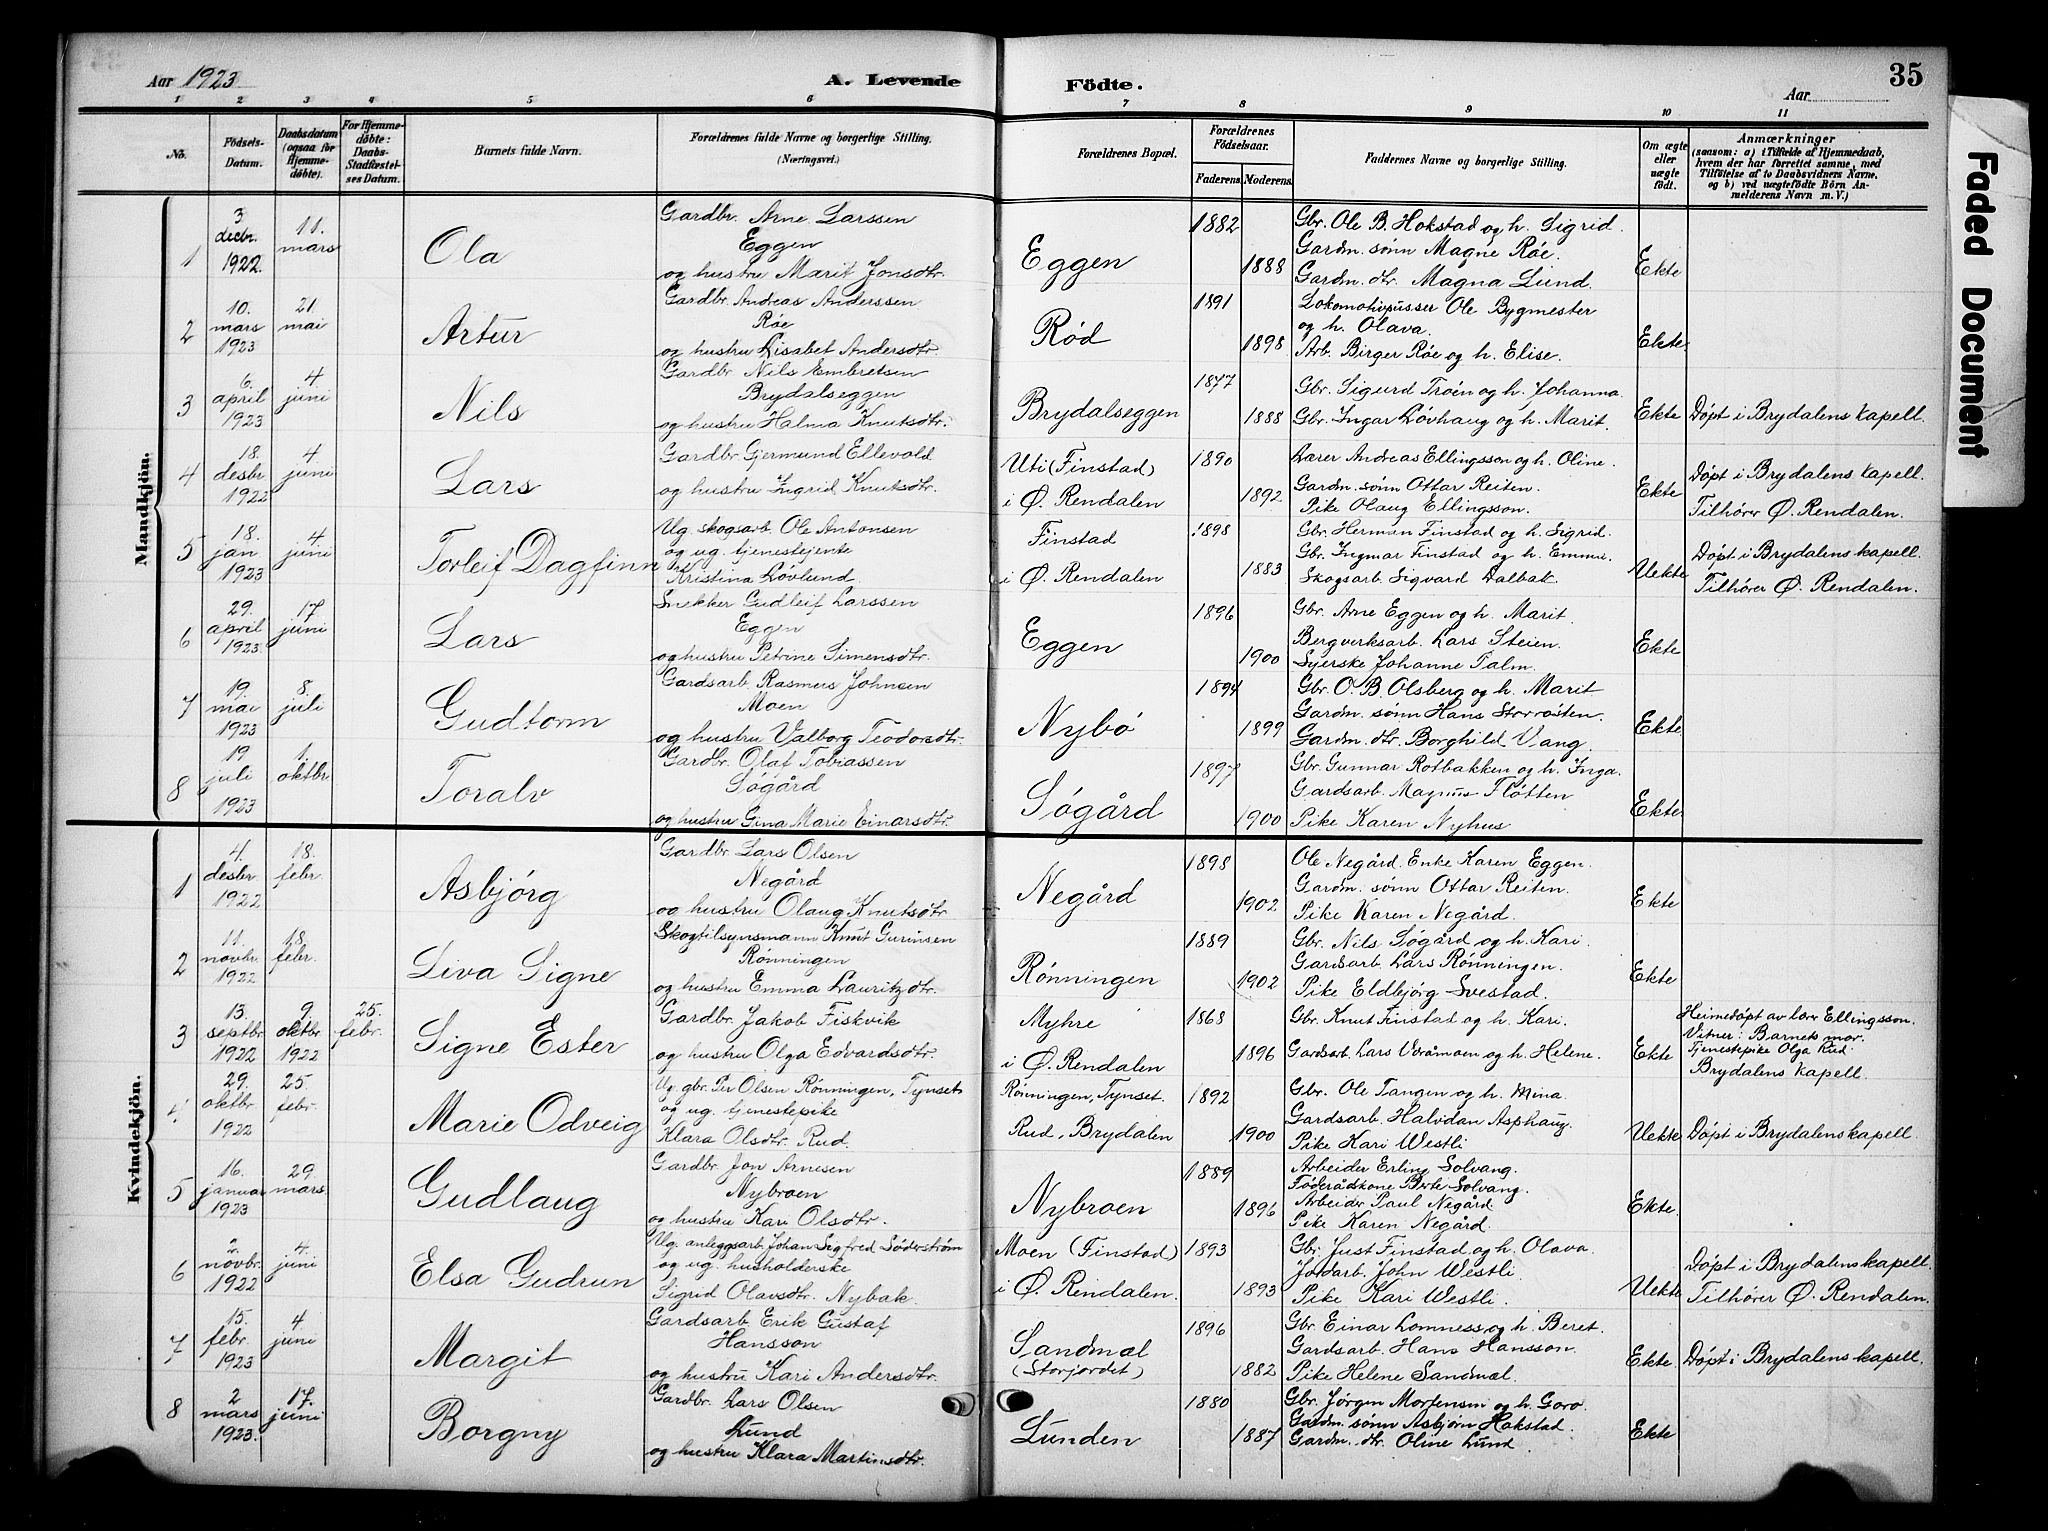 Aar 1923
A. Levende
Födte.
Aar
35
Faded Document
1 2 3 4 5 6 7 8 9 10 11
No.
Födsels-Datum.
Daabsdatum (ogsaa for Hjemme-döbte).
For Hjemme-döbte: Daabs-Stadfæstel-ses Datum.
Barnets fulde Navn.
Forældrenes fulde Navne og borgerlige Stilling. (Næringsvei.)
Forældrenes Bopæl.
Forældrenes Födselsaar.
Faderens.
Moderens.
Faddernes Navne og borgerlige Stilling.
Om ægte eller uægte födt.
Anmærkninger
(saasom: a) i Tilfælde af Hjemmedaab, hvem der har forrettet samme, med Tilföielse af to Daabsvidners Navne, og b) ved uægtefödte Börn An-melderens Navn m. V.)
Mandkjön.
1
3 decbr. 1922.
11. mars
Ola
Gardbr. Arne Larssen
Eggen
og hustru Marit Jonsdtr.
Eggen
1882
1888
Gbr. Ole B. Hokstad og h. Sigrid.
Gardm. sønn Magne Røe.
Gardm. dtr. Magna Lund.
Ekte
2
10. mars 1923
21. mai
Artur
Gardbr. Andreas Anderssen
Røe
og hustru Lisabet Andersdtr.
Rød
1891
1898
Lokomotivpusser Ole Bygmester
og h. Olava.
Arb. Birger Røe og h. Elise.
Ekte.
3
6. april 1923
4. juni
Nils
Gardbr Nils Embretsen
Brydalseggen
og hustru Halma Knutsdtr.
Brydalseggen
1877
1888
Gbr. Sigurd Trøen og h. Johanna.
Gbr. Ingar Løvhaug og h. Marit.
Ekte
Døpt i Brydalens kapell.
4
18. desbr 1922
4. juni
Lars
Gardbr. Gjermund Ellevold
og hustru Ingrid Knutsdtr.
Uti (Finstad)
i Ø. Rendalen
1890
1892
Lærer Andreas Ellingsson og h. Oline.
Gardm. sønn Ottar Reiten.
Pike Olaug Ellingsson.
Ekte
Døpt i Brydalens kapell.
Tilhører Ø. Rendalen.
5
18. jan 1923
4. juni
Torleif Dagfinn
Ug. skogsarb. Ole Antonsen
og ug. tjenestejente
Kristina Løvlund.
Finstad
i Ø. Rendalen
1898
1883
Gbr. Herman Finstad og h. Sigrid.
Gbr. Ingmar Finstad og h. Emma.
Skogsarb. Sigvard Dalbak.
Uekte
Døpt i Brydalens kapell.
Tilhører Ø. Rendalen.
6
29. april 1923.
17. juni
Lars
Snekker Gudleif Larssen
Eggen
og hustru Petrine Simensdtr.
Eggen
1896
1900
Gbr. Arne Eggen og h. Marit.
Bergverksarb. Lars Steien.
Syerske Johanne Talm.
Ekte
7
19. mai 1923
8. juli
Gudtorm
Gardsarb. Rasmus Johnsen
Moen
og hustru Valborg Teodorsdtr.
Nybø
1894
1899
Gbr. O. B. Olsberg og h. Marit
Gardm. sønn Hans Storrøsten.
Gardm. dtr. Borghild Vang.
Ekte
8
19 juli 1923
1. oktbr
Toralv
Gardbr. Olaf Tobiassen
Søgård
og hustru Gina Marie Einarsdtr.
Søgård
1897
1900
Gbr. Gunnar Rotbakken og h. Inga.
Gardsarb. Magnus Fløtten
Pike Karen Nyhus
Ekte
Kvindekjön.
1
4. desbr 1922
18. febr.
Asbjørg
Gardbr Lars Olsen
Negård
og hustru Olaug Knutsdtr.
Negård
1898
1902
Ole Negård. Enke Karen Eggen.
Gardm. sønn Ottar Reiten.
Pike Karen Negård.
Ekte
2
11. novbr. 1922
18. febr.
Liva Signe
Skogtilsynsmann Knut Gurinsen
Rønningen
og hustru Emma Lauritzdtr.
Rønningen
1889
1902
Gbr. Nils Søgård og h. Kari.
Gardsarb. Lars Rønningen.
Pike Eldbjørg Svestad.
Ekte
3
13. septbr. 1922
9. oktbr 1922
25. febr.
Signe Ester
Gardbr. Jakob Fiskvik
og hustru Olga Edvardsdtr.
Myhre
i Ø. Rendalen
1868
1896
Gbr. Knut Finstad og h. Kari.
Gardsarb. Lars Voråmoen og h. Helene.
Ekte
Heimedøpt av lærer Ellingsson.
Vitner: Barnets mor.
Tjenestepike Olga Rud.
Brydalens kapell.
4
29. oktbr. 1922
25. febr.
Marie Odveig
Ug. gbr. Per Olsen Rønningen, Tynset
og ug. tjenestepike
Klara Olsdtr. Rud.
Rønningen, Tynset.
Rud, Brydalen
1892
1900
Gbr. Ole Tangen og h. Mina.
Gardsarb. Halvdan Asphaug.
Pike Kari Westli
Uekte
Døpt i Brydalens kapell.
5
16. januar 1923
29. mars
Gudlaug
Gardbr. Jon Arnesen
Nybroen
og hustru Kari Olsdtr.
Nybroen
1889
1896
Arbeider Erling Solvang.
Føderådskone Berte Solvang.
Arbeider Paul Negård.
Pike Karen Negård.
Ekte.
6
2. novbr. 1922
4. juni
Elsa Gudrun
Ug. anleggsarb. Johan Sigfred Søderstrøm
og ug. husholderske
Sigrid Olavsdtr. Nybak.
Moen (Finstad)
i Ø. Rendalen.
1893
1893
Gbr. Just Finstad og h. Olava.
Jordarb. John Westli.
Pike Kari Westli.
Uekte
Døpt i Brydalens kapell.
Tilhører Ø. Rendalen.
7
15. febr. 1923
4. juni
Margit
Gardsarb. Erik Gustaf
Hansson
og hustru Kari Andersdtr.
Sandmæl
(Storjordet)
1896
1882
Gbr. Einar Lomness og h. Beret.
Gardsarb. Hans Hansson.
Pike Helene Sandmæl.
Ekte
Døpt i Brydalens kapell.
8
2 mars 1923.
17. juni
Borgny
Gardbr. Lars Olsen
Lund
og hustru Klara Martinsdtr.
Lunden
1880
1887
Gbr. Jørgen Mortensen og h. Goro.
Gardm. sønn Asbjørn Hokstad.
Gardm. dtr. Oline Lund.
Ekte